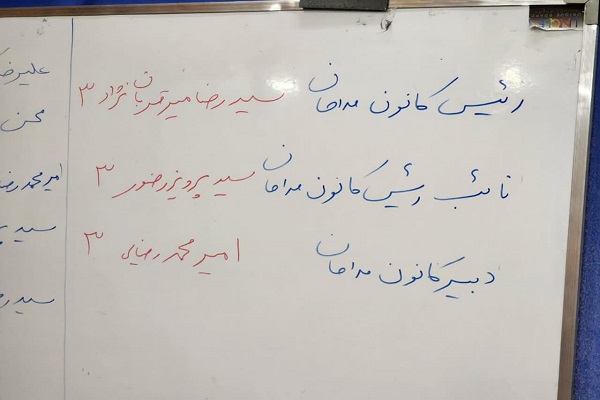 رئیس کانون مداحان سیدرضا میرقربان نژاد ۳
نائب رئیس کانون مداحان سید پرویز رضور ۳
دبیر کانون مداحان امیرمحمد رضایی ۳
علیرضا
محسن
امیرمحمد رضا
سید
سید